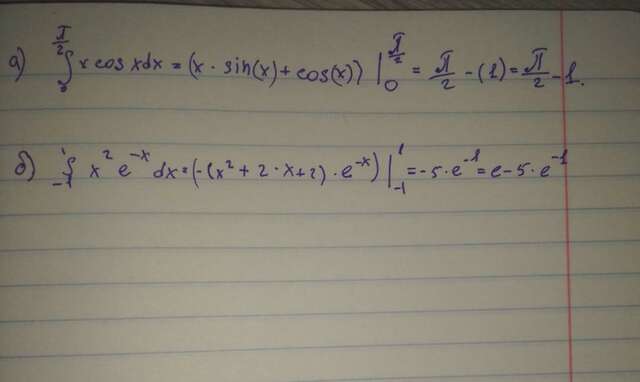 а) ∫₀^(π/2) x cos x dx = (x · sin(x) + cos(x)) |₀^(π/2) = π/2 - (1) = π/2 - 1.
б) ∫₋₁^1 x² e^(-x) dx = (-(x² + 2 · x + 2) · e^(-x)) |₋₁^1 = -5 · e^(-1) = e - 5 · e^(-1)